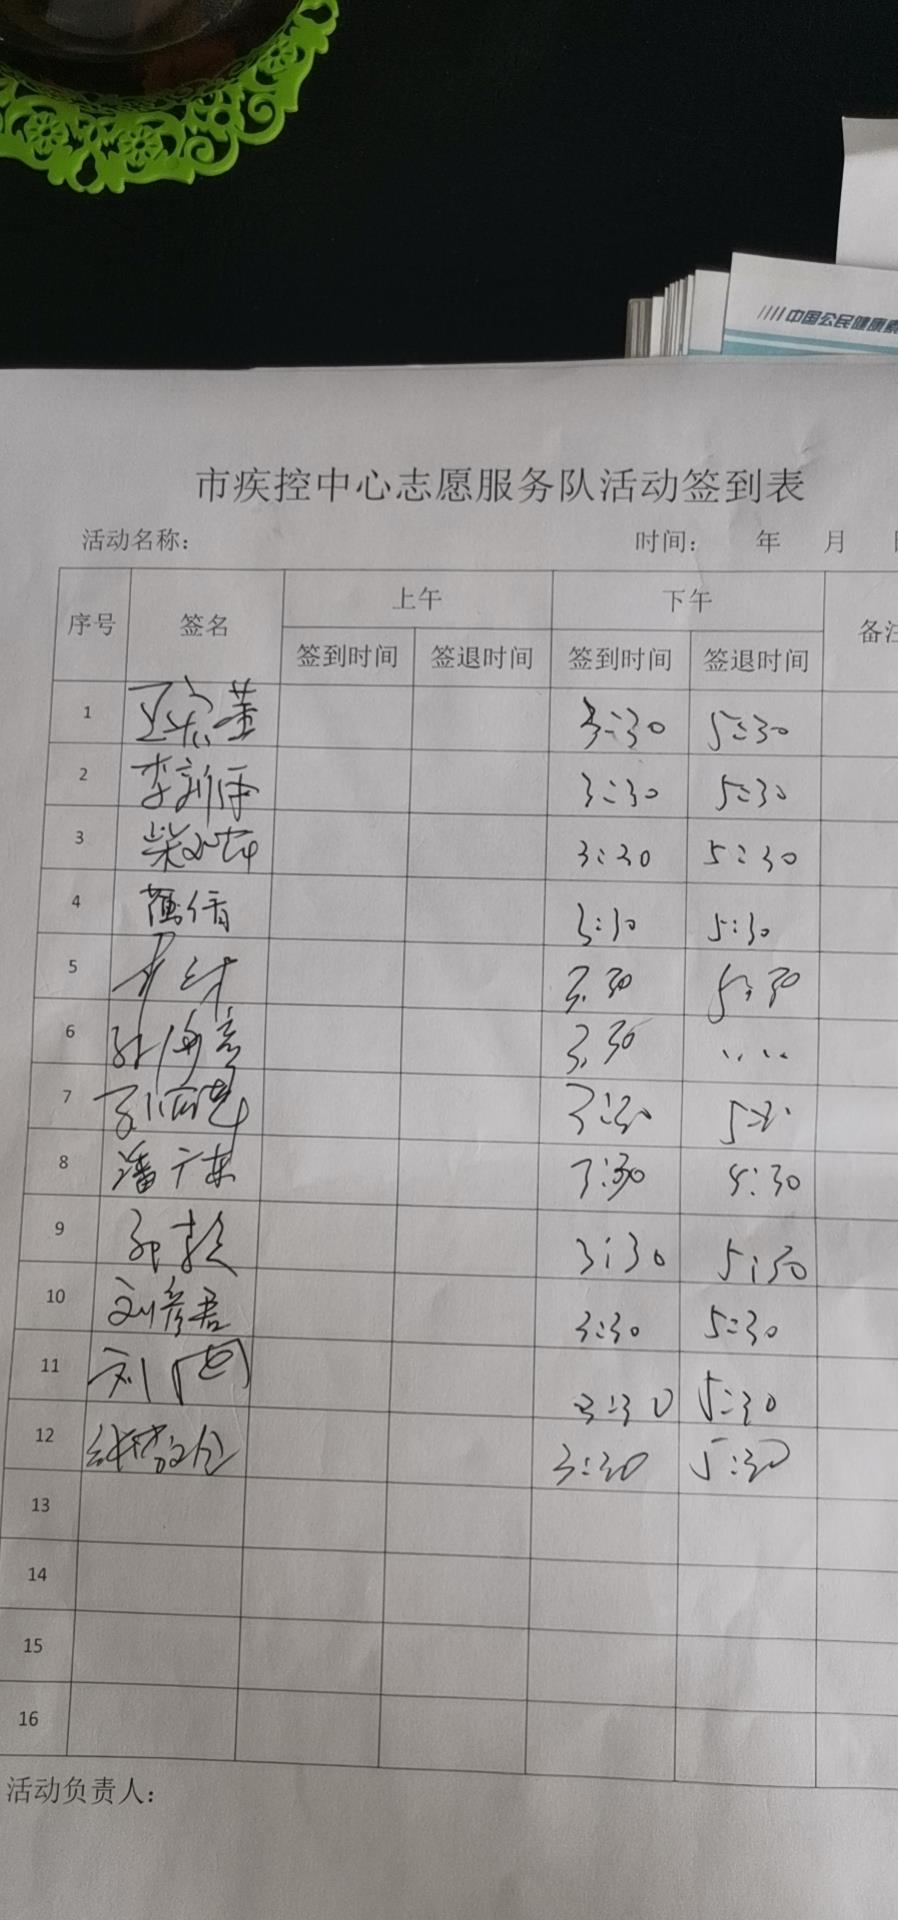 中国公民健康素
市疾控中心志愿服务队活动签到表
活动名称： 时间： 年 月
序号 签名 上午 下午 备注
签到时间 签退时间 签到时间 签退时间
1 3:30 5:30
2 李新伟 3:30 5:30
3 3:30 5:30
4 3:30 5:30
5 3:30 5:30
6 3:30 ....
7 3:30 5:30
8 潘广东 3:30 5:30
9 3:30 5:30
10 刘彦君 3:30 5:30
11 刘 3:30 5:30
12 3:30 5:30
13
14
15
16
活动负责人：